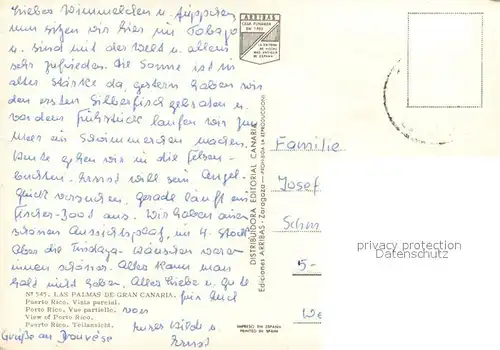 Liebes Wimmelchen u.
nun sitzen wir hier im Tobago
u. sind mit der Welt u. allem
sehr zufrieden. Die Sonne ist in
alter Stärke da, gestern haben wir
den ersten Silberfisch gebraten u.
vor dem Frühstück laufen wir zum
Meer ein Schwimmerchen machen.
Heute gehen wir in die Felsen-
buchten. Ernst will sein Angel-
glück versuchen. Gerade läuft ein
Fischer-Boot aus. Wir haben einen
schönen Aussichtsplatz, im 4. Stock
Aber die Tindaya- wären
immer schöner. Alles kann man
halt nicht haben. Alles Liebe u. Gute
für Euch
von
Eurer Hilde u.
Ernst
Grüße an
Nº 545. LAS PALMAS DE GRAN CANARIA.
Puerto Rico. Vista parcial.
Puerto Rico. Vue partielle.
View of Puerto Rico.
Puerto Rico. Teilansicht.
ARRIBAS
CASA FUNDADA
EN 1903
DISTRIBUIDORA EDITORIAL CANARIA
Ediciones ARRIBAS - Zaragoza - PROHIBIDA LA REPRODUCCION
IMPRESO EN ESPAÑA
PRINTED IN SPAIN
Familie
Josef
Schm
5-
We
privacy protection
Datenschutz